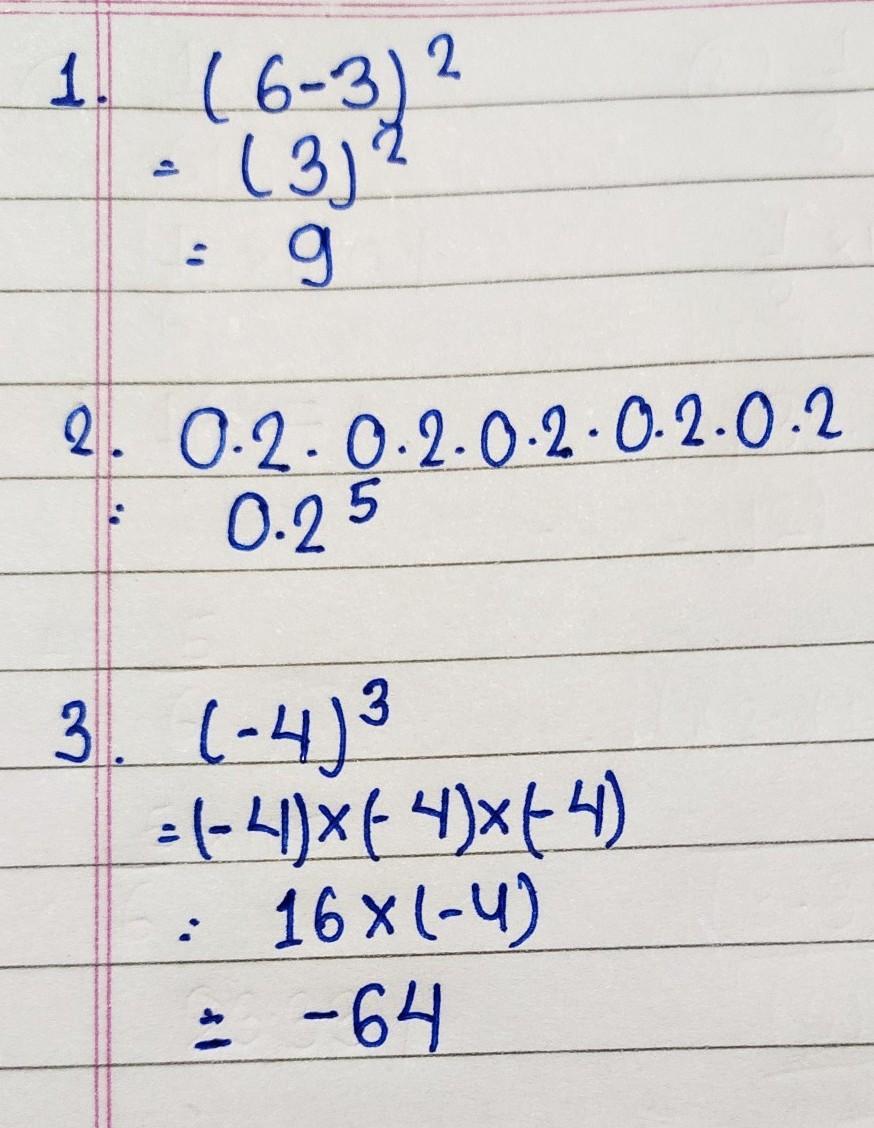 1. (6-3)²
= (3)²
= 9
2. 0.2 . 0.2 . 0.2 . 0.2 . 0.2
= 0.2⁵
3. (-4)³
= (-4)×(-4)×(-4)
= 16×(-4)
= -64